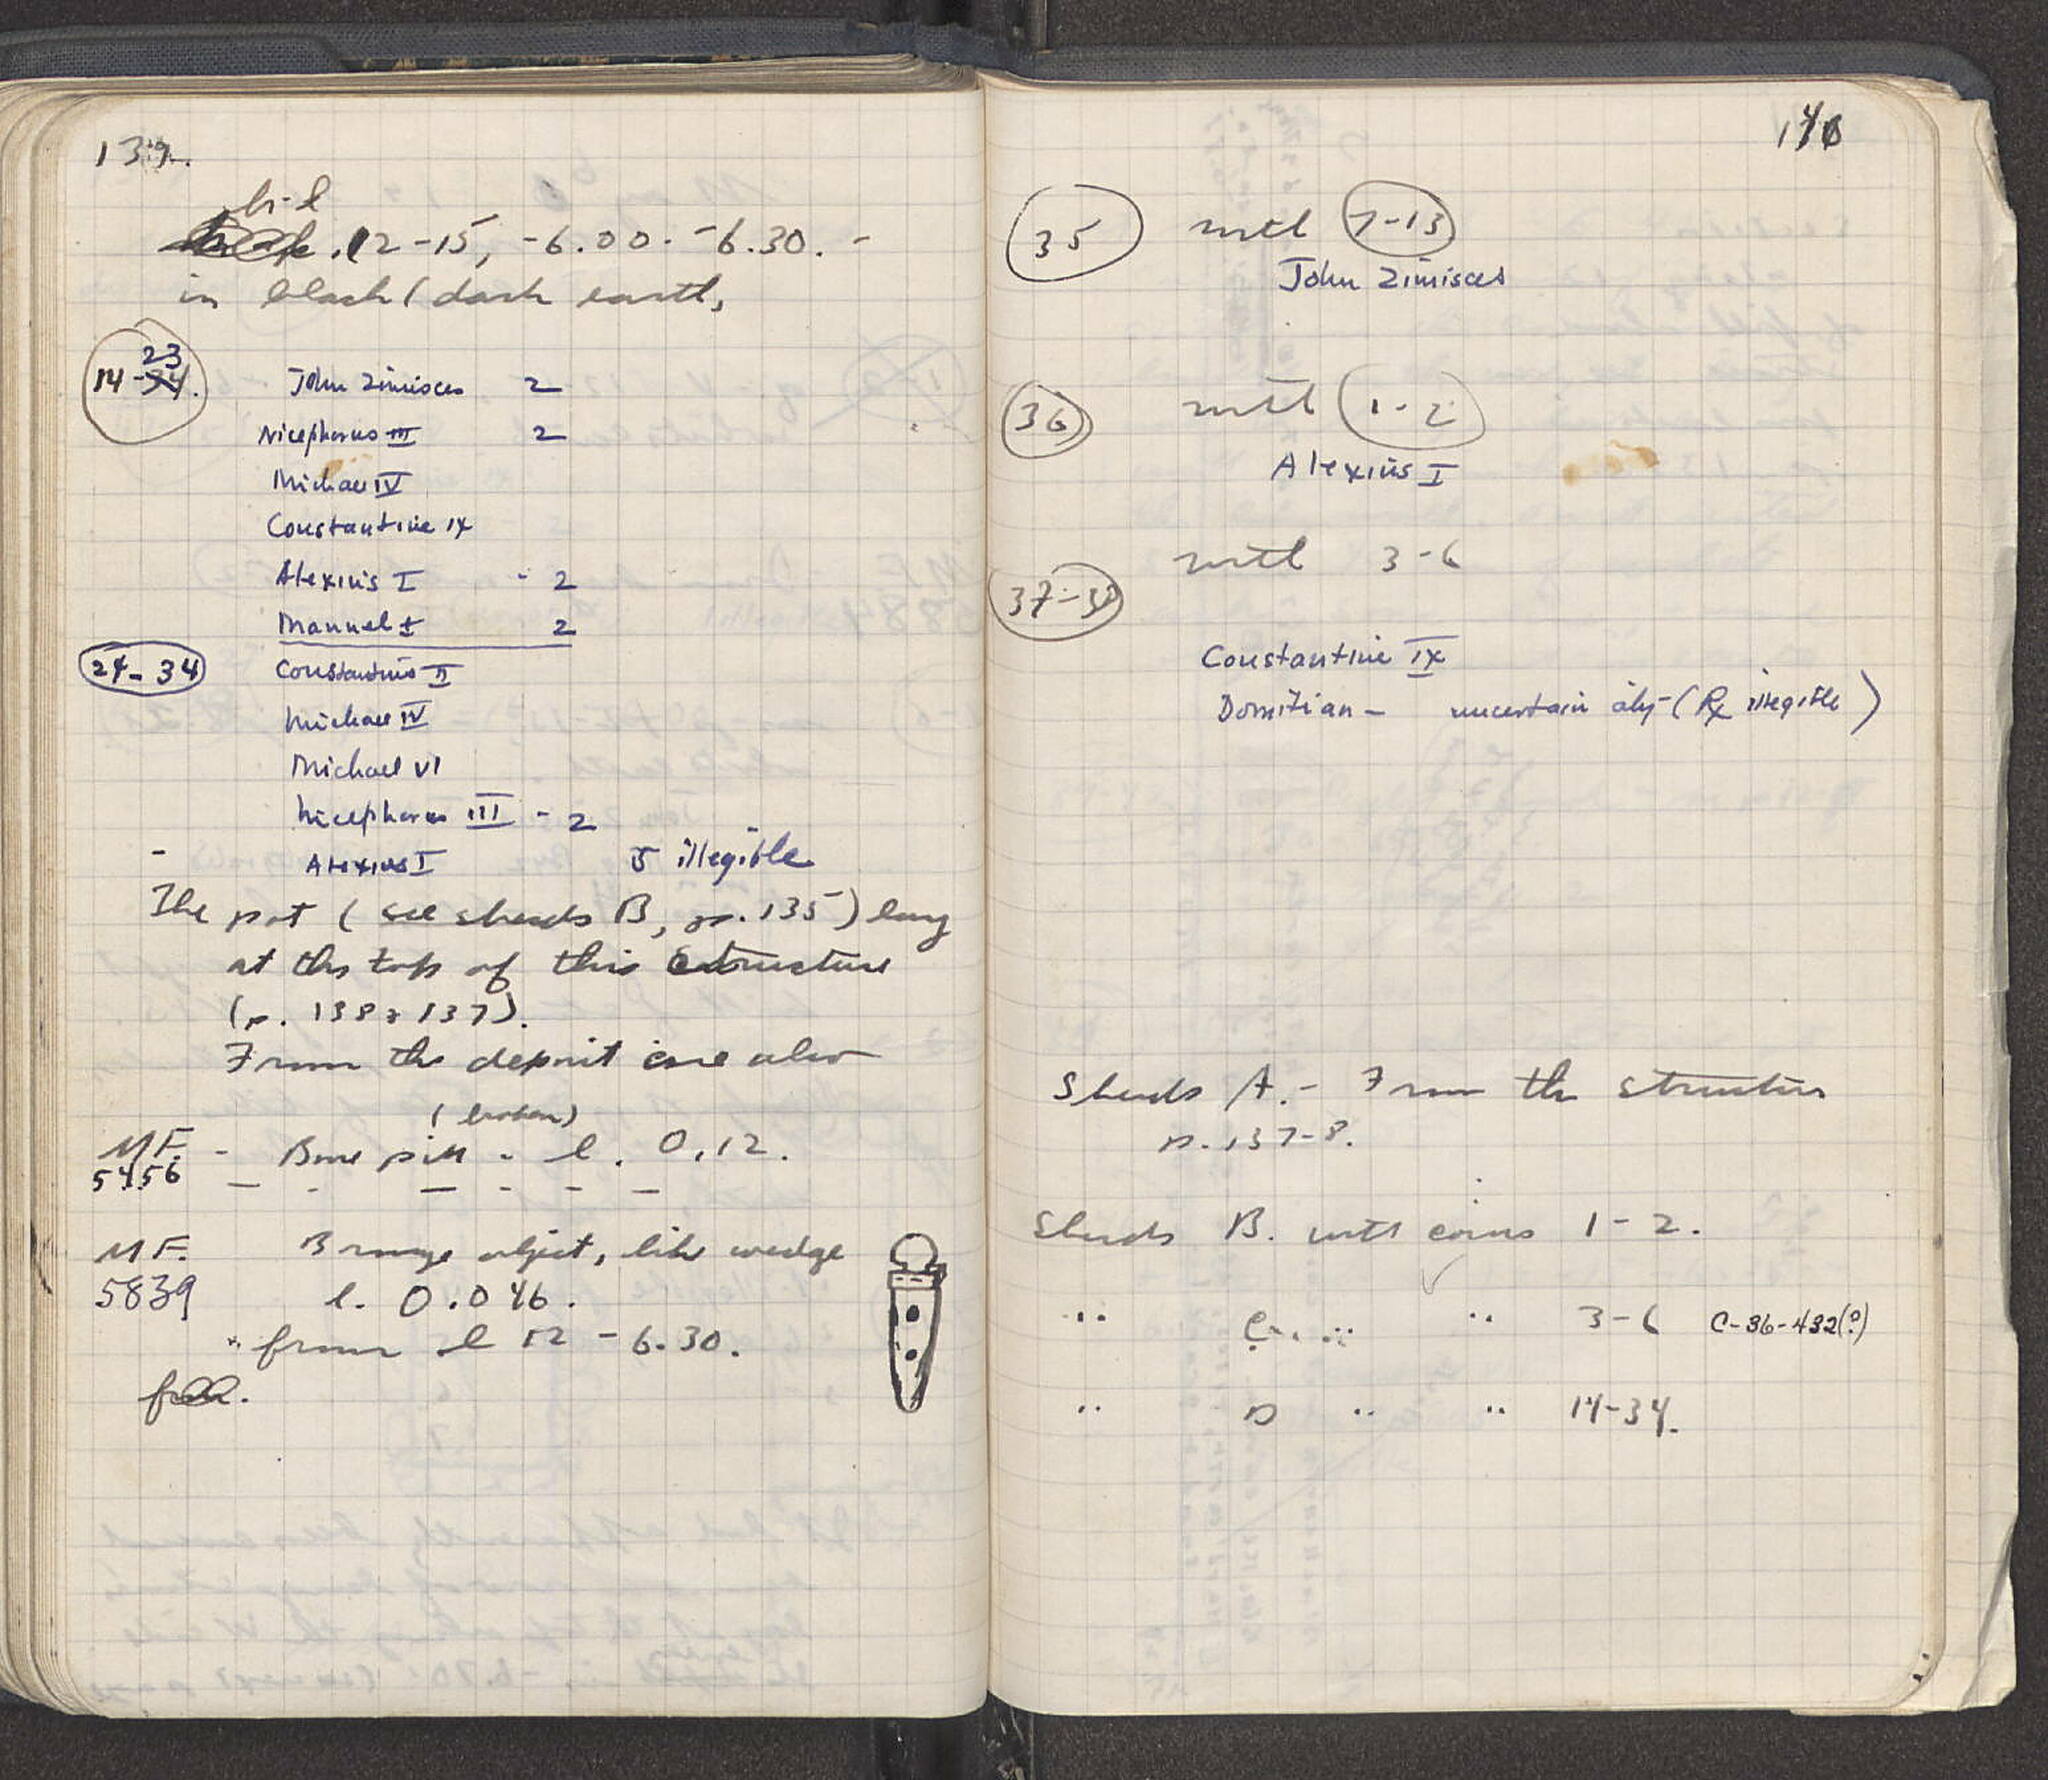 139.
h-l
12-15, -6.00 - -6.30. -
in black (dark earth,
14-23
34.
John Zimisces 2
Nicephorus III 2
Michael IV
Constantine IX
Alexius I - 2
Manuel I 2
24-34
Constantius II
Michael IV
Michael VI
Nicephorus III - 2
Alexius I 5 illegible
The pot (see sherds B, p. 135) lay
at the top of this structure
(p. 138 & 137).
From the deposit come also
(broken)
MF. - Bone pin - l. 0,12.
5456
MF. Bronze object, like wedge
5839 l. 0.046.
from l 12 -6.30.
fill.
140
35 with 7-13
John Zimisces
36 with 1-2
Alexius I
with 3-6
37-38
Constantine IX
Domitian - uncertain obj- (Rx illegible)
Sherds A. - From the structure
p. 137-8.
Sherds B. with coins 1-2.
" C. " " 3-6 C-36-432(?)
" D " " 14-34.